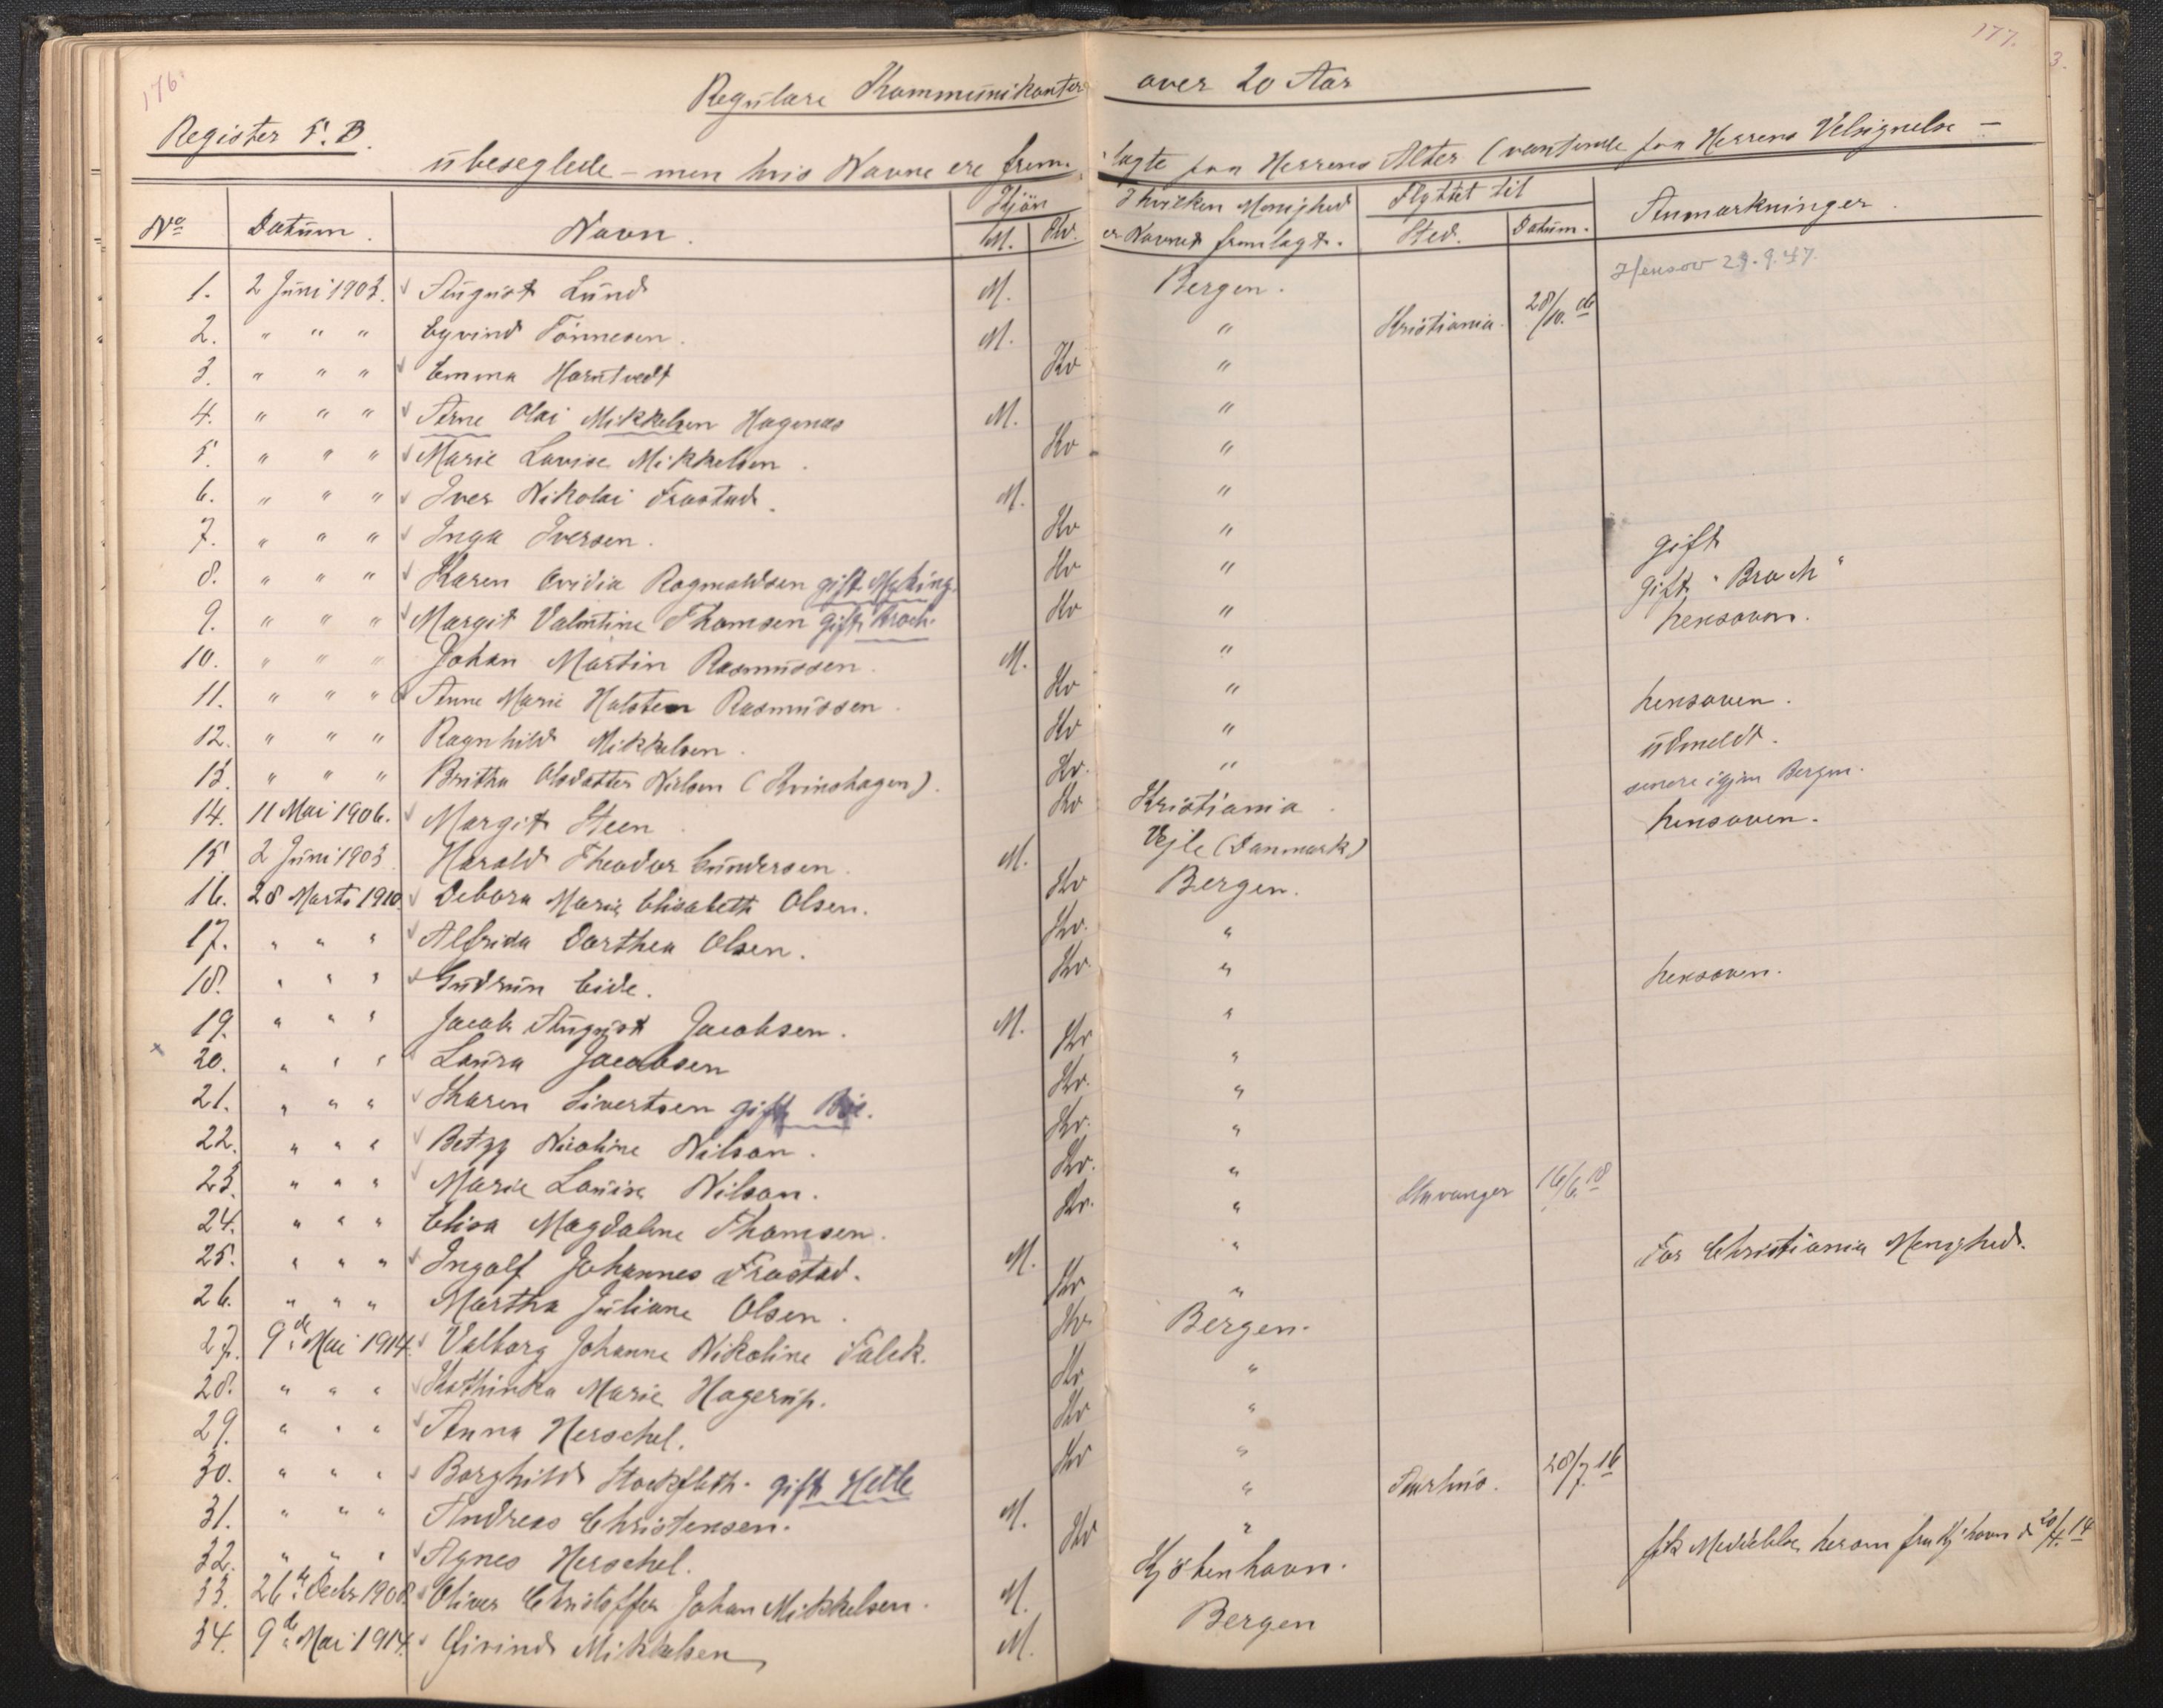 176. 177.
Regulære Kommunikanter over 20 Aar
Register 5. B.
ubeseglede – men hvis Navne ere fremlagte paa Herrens Alter (ventende paa Herrens Velsignelse –
No Datum. Navn. Kjön I hvilken Menighed Flyttet til Anmærkninger.
M. Kv. er Navnet fremlagt. Sted. Datum.
1. 2 Juni 1903. August Lund M. Bergen. Hensov 29.9.47.
2. " " " Eyvind Tönnesen. M. " Kristiania. 28/10. 06
3. " " " Emma Harutvedt Kv "
4. " " " Arne Olai Mikkelsen Hagenæs M. "
5. " " " Marie Lovise Mikkelsen. Kv "
6. " " " Iver Nikolai Frostad. M. "
7. " " " Inga Iversen. Kv " gift
8. " " " Karen Ovidia Ragnvaldsen gift Myking. Kv " gift "Broch"
9. " " " Margit Valentine Thomsen gift Broch. Kv " hensoven.
10. " " " Johan Martin Rasmussen. M. "
11. " " " Anne Marie Holsten Rasmussen. Kv " hensoven.
12. " " " Ragnhild Mikkelsen. Kv " udmeldt.
13. " " " Britha Olsdatter Nielsen (Kvinshagen). Kv. " senere igjen Bergen.
14. 11 Mai 1906. Margit Steen Kv Kristiania. hensoven.
15. 2 Juni 1903 Harald Theodor Gundersen. M. Vejle (Danmark)
16. 28 Marts 1910. Debora Marie Elisabeth Olsen. Kv Bergen.
17. " " " Alfrida Dorthea Olsen. Kv. "
18. " " " Gudrun Eide. Kv. " hensoven.
19. " " " Jacob August Jacobsen. M. "
x 20. " " " Laura Jacobsen Kv "
21. " " " Karen Sivertsen gift Bøe. Kv. "
22. " " " Betzy Nicoline Nilson. Kv. "
23. " " " Marie Louise Nilson. Kv. "
24. " " " Elisa Magdalene Thomsen. Kv. " Stavanger 16/6. 18
25. " " " Ingolf Johannes Frostad. M. " For Christiania Menighed.
26. " " " Martha Juliane Olsen. Kv "
27. 9de Mai 1914. Valborg Johanne Nikoline Falck. Kv Bergen.
28. " " " Kathinka Marie Hagerup. Kv "
29. " " " Anna Herschel. Kv "
30. " " " Borghild Stockfleth. gift Helle Kv "
31. " " " Andreas Christensen. M. " Aarhus. 28/7. 16
32. " " " Agnes Herschel. Kv "
33. 26de Decbr 1908. Oliver Christoffer Johan Mikkelsen. M. Kjöbenhavn. fik Meddelelse herom fra Kjhavn d 20/4. 14
34. 9de Mai 1914. Eivind Mikkelsen M. Bergen